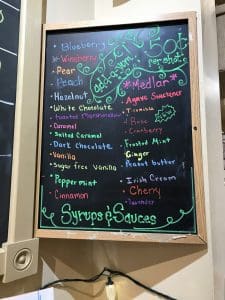 Blueberry
Wineberry
Pear
Peach
Hazelnut
White Chocolate
Toasted Marshmallow
Caramel
Salted Caramel
Dark Chocolate
Vanilla
Sugar free Vanilla
Peppermint
Cinnamon
add-a-flavor:
50¢
per shot
*Medlar*
Agave Sweetener
Tiramisu
Rose
Cranberry
Frosted Mint
Ginger
Peanut butter
Irish Cream
Cherry
lavender
Syrups & Sauces